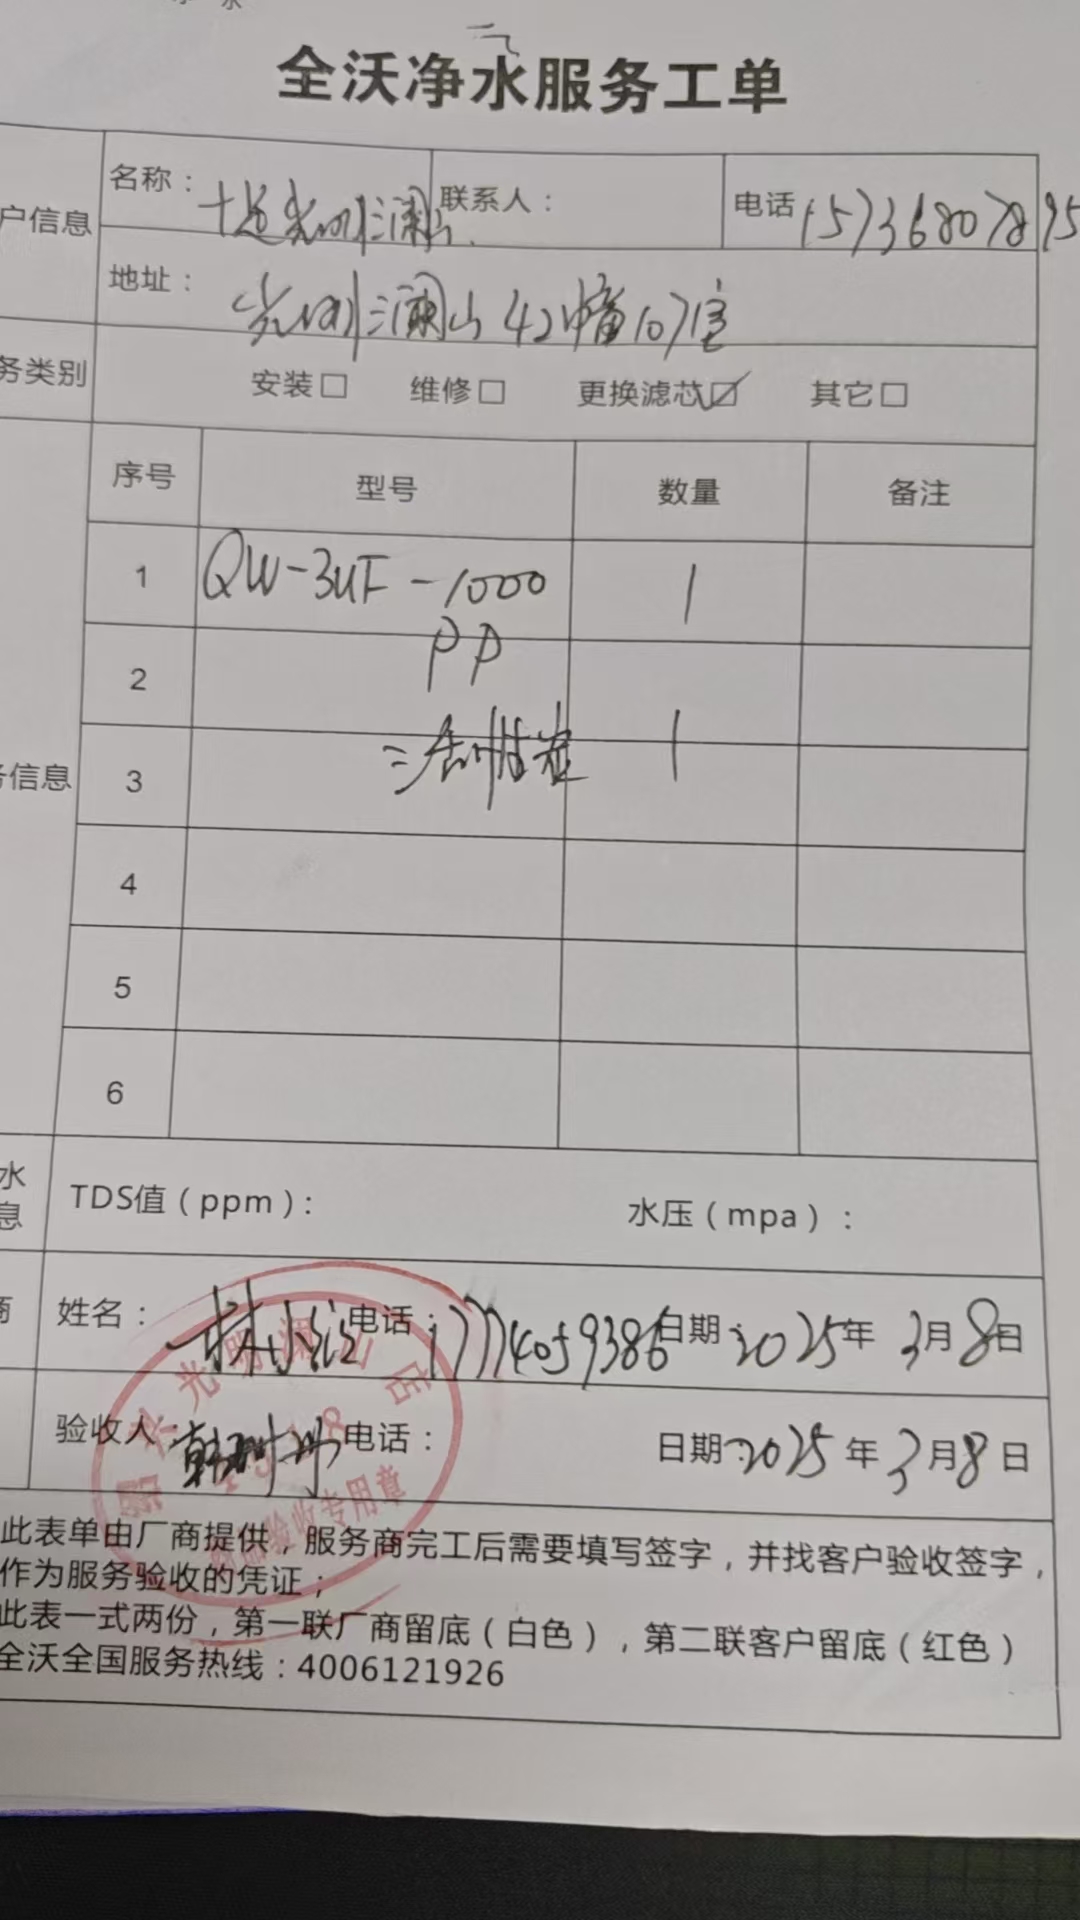 全沃净水服务工单
户信息
名称：
联系人：
电话 15736807895
地址：光明澜山42幢107室
务类别
安装□ 维修□ 更换滤芯☑ 其它□
序号 型号 数量 备注
1 QW-3UF-1000 1
PP
2
3 1
4
5
6
务信息
水
息
TDS值（ppm）： 水压（mpa）：
商
姓名： 电话：17774059386 日期：2025年3月8日
验收人： 电话： 日期：2025年3月8日
光明澜山店
验收专用章
此表单由厂商提供，服务商完工后需要填写签字，并找客户验收签字，
作为服务验收的凭证；
此表一式两份，第一联厂商留底（白色），第二联客户留底（红色）
全沃全国服务热线：4006121926